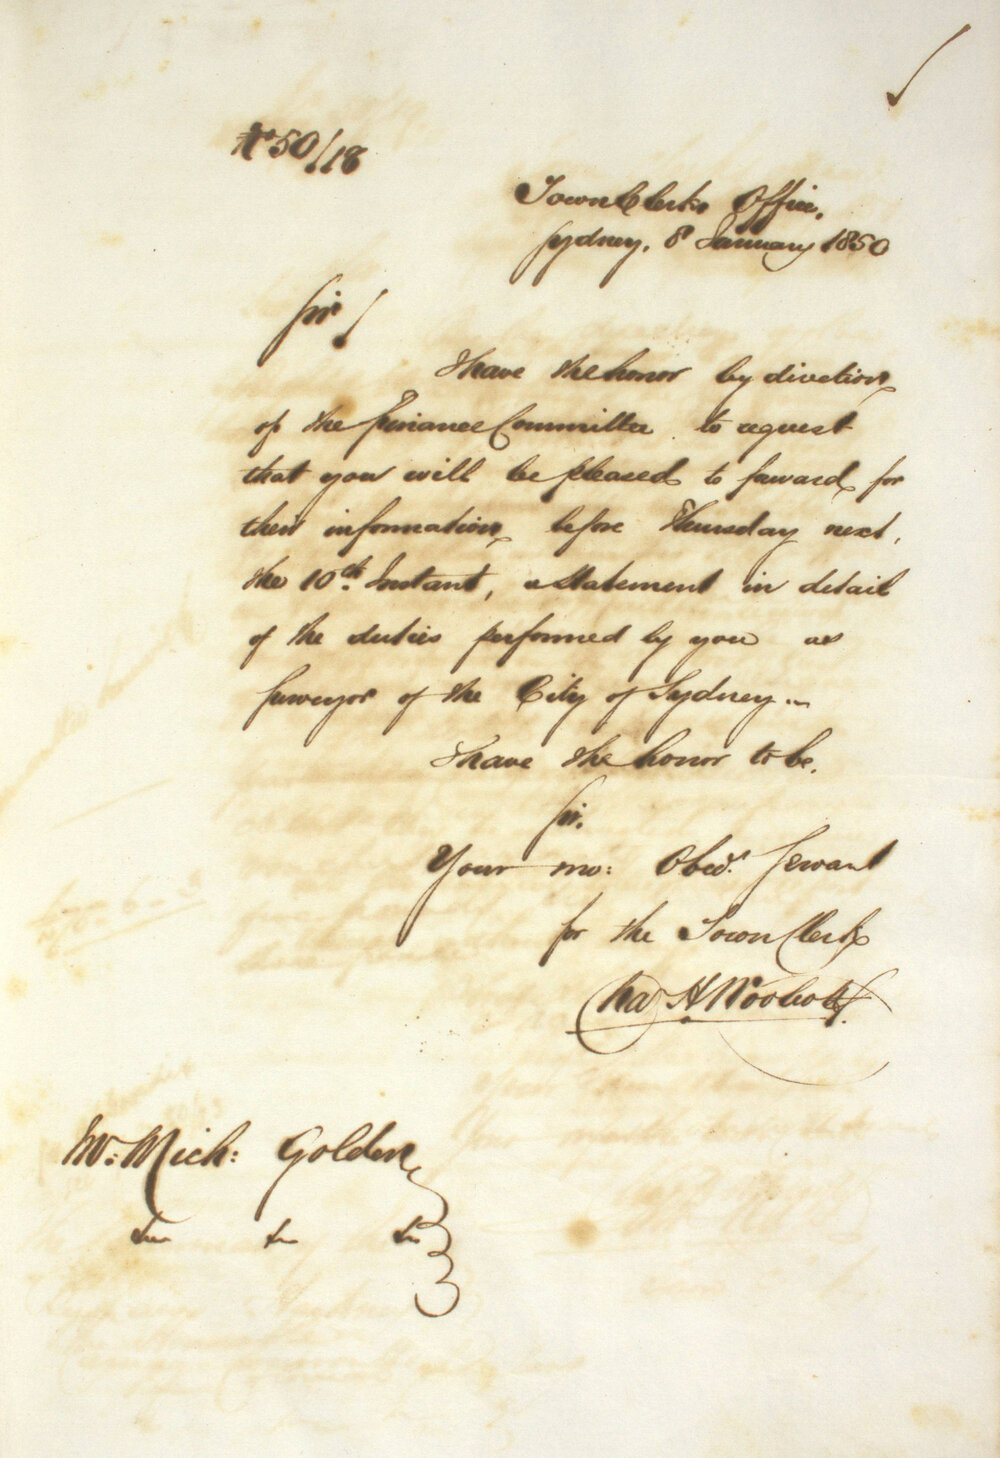 No 50/18
Town Clerks Office,
Sydney, 8 January 1850
Sir!
I have the honor by direction
of the Finance Committee to request
that you will be pleased to forward, for
their information, before Thursday next,
the 10th Instant, a Statement in detail
of the duties performed by you as
Surveyor of the City of Sydney
I have the honor to be,
Sir,
Your mo: Obed. Servant
for the Town Clerk
Chas H Woolcott
Mr: Mich: Golden